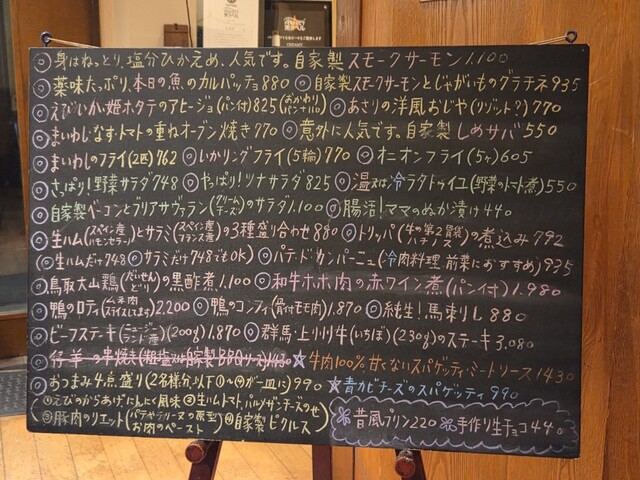 ◎身はねっとり、塩分ひかえめ、人気です。自家製スモークサーモン1.100
◎薬味たっぷり、本日の魚のカルパッチョ880 ◎自家製スモークサーモンとじゃがいものグラチネ935
◎えび・いか・姫ホタテのアヒージョ(パン付)825(おかわりパン110) ◎あさりの洋風おじや(リゾット?)770
◎まいわし・なす・トマトの重ねオーブン焼き770 ◎意外に人気です。自家製しめサバ550
◎まいわしのフライ(2匹)762 ◎いかリングフライ(5輪)770 ◎オニオンフライ(5ヶ)605
◎さっぱり!野菜サラダ748 ◎やっぱり!ツナサラダ825 ◎温又は冷ラタトゥイユ(野菜のトマト煮)550
◎自家製ベーコンとブリアサヴァラン(クリームチーズ)のサラダ1.100 ◎腸活!ママのぬか漬け440
◎生ハム(スペイン産ハモンセラーノ)とサラミ(スペイン産フランス産)の3種盛り合わせ880 ◎トリッパ(牛の第2胃袋ハチノス)の煮込み792
◎生ハムだけ748 ◎サラミだけ748でもOK ◎パテ・ド・カンパーニュ(冷肉料理 前菜におすすめ)935
◎鳥取大山鶏(だいせんどり)の黒酢煮1.100 ◎和牛ホホ肉の赤ワイン煮(パン付)1.980
◎鴨のロティ(ムネ肉スライスしてます)2.200 ◎鴨のコンフィ(骨付モモ肉)1.870 ◎純生!馬刺し880
◎ビーフステーキ(ニュージーランド産)(200g)1.870 ◎群馬・上州牛(いちぼ)(230g)のステーキ3.080
◎仔羊の串焼き(粗塩又は自家製BBQソース)1430 ★牛肉100%甘くないスパゲッティ・ミートソース1430
◎おつまみ4点盛り(2名様分以下①~④が一皿に)990 ★青カビチーズのスパゲッティ990
①えびのからあげにんにく風味②生ハムトマト、パルメザンチーズのせ
③豚肉のリエット(パテやテリーヌの原型お肉のペースト)④自家製ピクルス
昔風プリン220 手作り生チョコ440